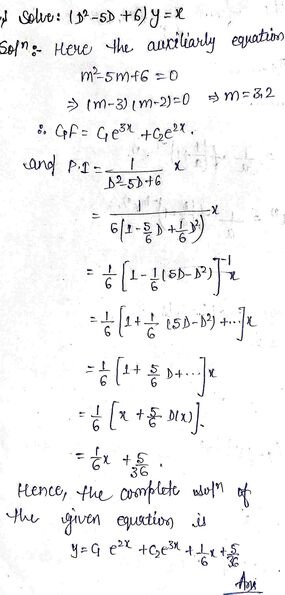 Solve: (D²-5D+6)y=x
Solⁿ:- Here the auxiliarly equation
m²-5m+6=0
⇒ (m-3)(m-2)=0 ⇒ m=3,2
∴ C.F = C₁e³ˣ + C₂e²ˣ.
and P.I = 1/(D²-5D+6) x
= 1/(6(1-5/6 D+1/6 D²)) x
= 1/6 [1-1/6 (5D-D²)]⁻¹ x
= 1/6 [1+1/6 (5D-D²)+...] x
= 1/6 [1+5/6 D+...] x
= 1/6 [x+5/6 D(x)].
= 1/6 x + 5/36.
Hence, the complete solⁿ of
the given equation is
y=C₁ e²ˣ + C₂e³ˣ + 1/6 x + 5/36
Ans